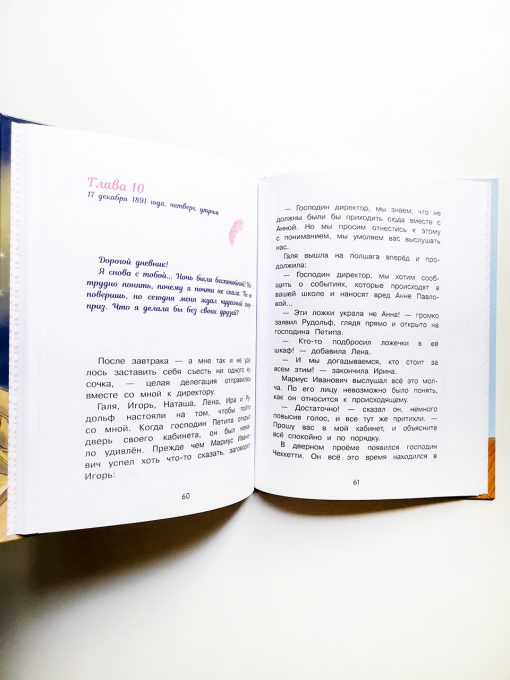 Глава 10
17 декабря 1891 года, четверг, утром
Дорогой дневник!
Я снова с тобой... Ночь была беспокойной! Не-
трудно понять, почему я почти не спала. Ты не
поверишь, но сегодня меня ждал чудесный сюр-
приз. Что я делала бы без своих друзей?
После завтрака — а мне так и не уда-
лось заставить себя съесть ни одного ку-
сочка, — целая делегация отправилась
вместе со мной к директору.
Галя, Игорь, Наташа, Лена, Ира и Ру-
дольф настояли на том, чтобы пойти
со мной. Когда господин Петипа открыл
дверь своего кабинета, он был нема-
ло удивлён. Прежде чем Мариус Ивано-
вич успел хоть что-то сказать, заговорил
Игорь:
60
— Господин директор, мы знаем, что не
должны были бы приходить сюда вместе с
Анной. Но мы просим отнестись к этому
с пониманием, мы умоляем вас выслушать
нас.
Галя вышла на полшага вперёд и про-
должила:
— Господин директор, мы хотим сооб-
щить о событиях, которые происходят в
вашей школе и наносят вред Анне Павло-
вой...
— Эти ложки украла не Анна! — громко
заявил Рудольф, глядя прямо и открыто на
господина Петипа.
— Кто-то подбросил ложечки в её
шкаф! — добавила Лена.
— И мы догадываемся, кто стоит за
всем этим! — закончила Ирина.
Мариус Иванович выслушал всё это мол-
ча. По его лицу невозможно было понять,
как он относится к происходящему.
— Достаточно! — сказал он, немного
повысив голос, и все тут же притихли. —
Прошу вас в мой кабинет, и объясните
всё спокойно и по порядку.
В дверном проёме появился господин
Чеккетти. Он всё это время находился в
61